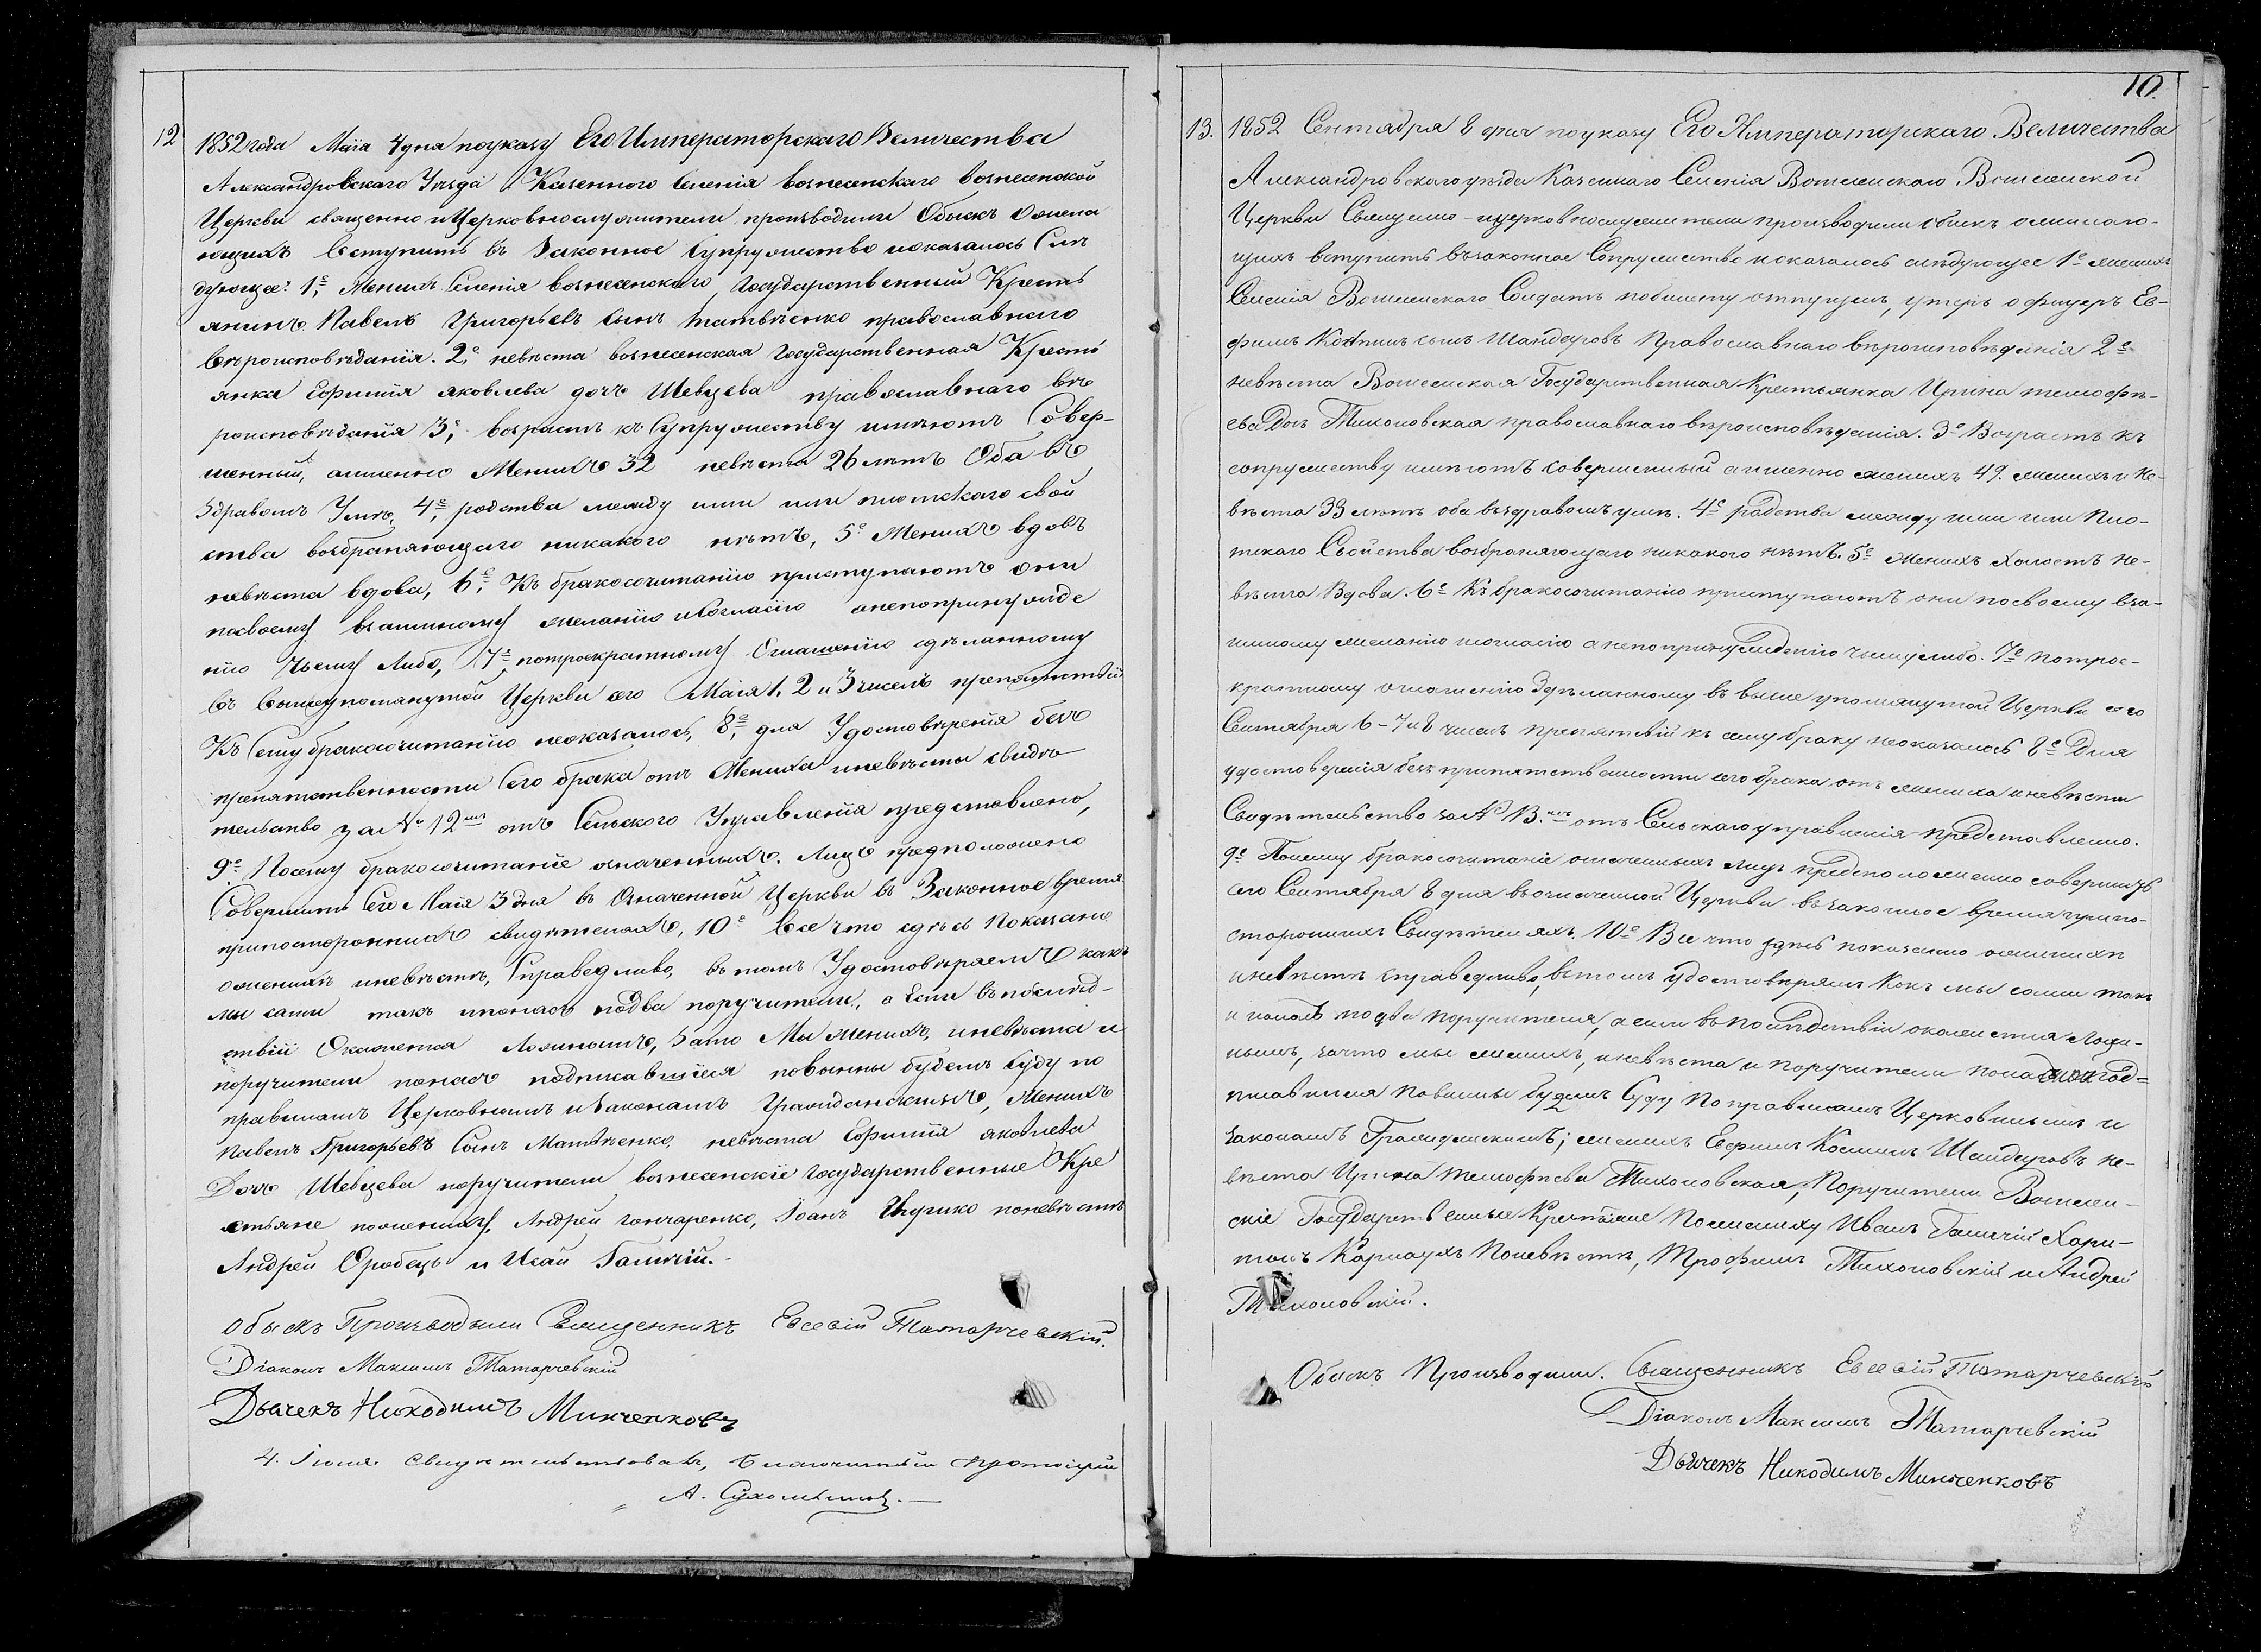 12
1852 года Маїа 4 дня поуказу Его Императорскаго Величества
Александровскаго Уѣзда Казенного Селенія вознесенскаго вознесенской
Церкви священно и Церковнослужители производили Обыскъ ожела
ющихъ Вступить въ Законное Супружество иоказалось Слѣ
дующее: 1е, Женихъ Селенія вознесенскаго, Государственный Кресть
янинъ Павелъ Григорьевъ Сынъ Матвѣенко православнаго
вѣроисповѣданія. 2е, невѣста вознесенская Государственная Кресть
янка Ефимія яковлева дочь Шевцева православнаго вѣ
роисповѣданія 3е, возрастъ къ Супружеству имѣютъ Совер-
шенный, аименно Женихъ 32 невѣста 26 лѣтъ Оба въ
Здравомъ Умѣ, 4е, родства между ими или плотскаго свой
ства возбраняющаго никакого нѣтъ, 5е Женихъ вдовъ
невѣста вдова, 6е, Къ бракосочитанію приступаютъ они
посвоему взаимному желанію иСогласію анепопринужде
нію Чьему Либо, 7е, потроекратному Оглашенію сдѣланному
въ вышеупомянутой Церкви сего Маія 1, 2 и 3 чиселъ препятствій
Къ Сему бракосочитанію неоказалось, 8е, для Удостовѣренія безъ
препятственности Сего брака отъ Жениха иневѣсты свидѣ
тельство за № 12мъ отъ Сельского Управленія представлено,
9е Посему бракосочитаніе означенныхъ Лицъ предположено
Совершить Сего Маія 3 дня въ Означенной Церкви въ Законное время
припостороннихъ свидѣтеляхъ, 10е Все что здѣсь Показано
оженихѣ иневѣстѣ, Справедливо, въ томъ Удостовѣряемъ какъ
мы сами такъ ипонасъ подва поручители, а Если въпослѣд-
ствіи Окажется Ложнымъ, Зато Мы Женихъ, иневѣста и
поручители понасъ подписавшіеся повинны будемъ Суду по
правиламъ Церковнымъ иЗаконамъ Гражданскимъ, Женихъ
Павелъ Григорьевъ Сынъ Матвѣенко, невѣста Ефимія яковлева
Дочь Шевцева поручители вознесенскіе Государственные Кре
стьяне пожениху, Андрей гончаренко, Іоанъ Цурико поневѣстѣ
Андрей Оробецъ и Исай Галичій.
Обыскъ Производили Священникъ Евсевій Татарчевскій.
Діаконъ Максимъ Татарчевскій
Дьячекъ Никодимъ Минченковъ
4. Іюля. Свидѣтельствовалъ, благочинный протоіерей
А. Сухомлинов.
10.
13.
1852 Сентября 8 дня поуказу Его Императорскаго Величества
Александровскаго уѣзда Казеннаго Селенія Вознесенскаго, Вознесенской
Церкви Священно-ицерковнослужители производили обыскъ ожелаю-
щихъ вступить възаконное Сопружество иоказалось слѣдующее 1е женихъ
Селенія Вознесенскаго Солдатъ побилету отпущен, унтеръ офицеръ Ев-
фимъ Козминъ сынъ Шандуровъ Православнаго вѣроисповѣданія 2е
невѣста Вознесенская Государственная Крестьянка Ирина тимофѣ-
ева Дочь Тихоновская православнаго вѣроисповѣданія. 3е Возрастъ къ
сопружеству имѣютъ совершенный аименно женихъ 49. женихъ и не-
вѣста 33 лѣтъ оба въздравомъ умѣ. 4е родства между ими или Пло-
тскаго Свойства возбраняющаго никакого нѣтъ. 5е женихъ холостъ не-
вѣста Вдова. 6е Къ бракосочитанію приступаютъ они посвоему вза-
имному желанію исогласію анепопринужденію чьемулибо. 7е потрое-
кратному оглашенію Здѣланному въ выше упомянутой Церкви сего
Сентября 6 - 7 и 8 чиселъ препятствій къ сему браку неоказалось 8е Для
удостоверенія безпрепятственности сего брака отъ жениха иневѣсты
Свидѣтельство за № 13.мъ отъ Сельскаго управленія представленно.
9е Посему бракосочитаніе означенныхъ лицъ предположенно совершить
сего Сентября 8 дня въозначенной Церкви възаконное время припо-
стороннихъ Свидѣтеляхъ. 10е Все что здѣсь показано оженихѣ
иневѣстѣ справедливо, въ томъ удостовѣряемъ Какъ мы сами такъ
и понасъ подва поручителя, аесли въпослѣдствіи окажется Лож-
нымъ, зачто мы женихъ, иневѣста и поручители понасъ под=
писавшіеся повинны будемъ Суду Поправиламъ Церковнымъ и
законамъ Гражданскимъ; женихъ Евфимъ Козминъ Шандуровъ не-
вѣста Ирина тимофѣева Тихоновская, Поручители Вознесен-
скіе Государственные Крестьяне Пожениху Иванъ Галичій Хари-
тонъ Карнаухъ Поневѣстѣ, Трофимъ Тихоновскій и Андрей
Тихоновскій.
Обыскъ Производили. Священникъ Евсевій Татарчевскій
Діаконъ Максимъ Татарчевскій
Дьячекъ Никодимъ Минченковъ